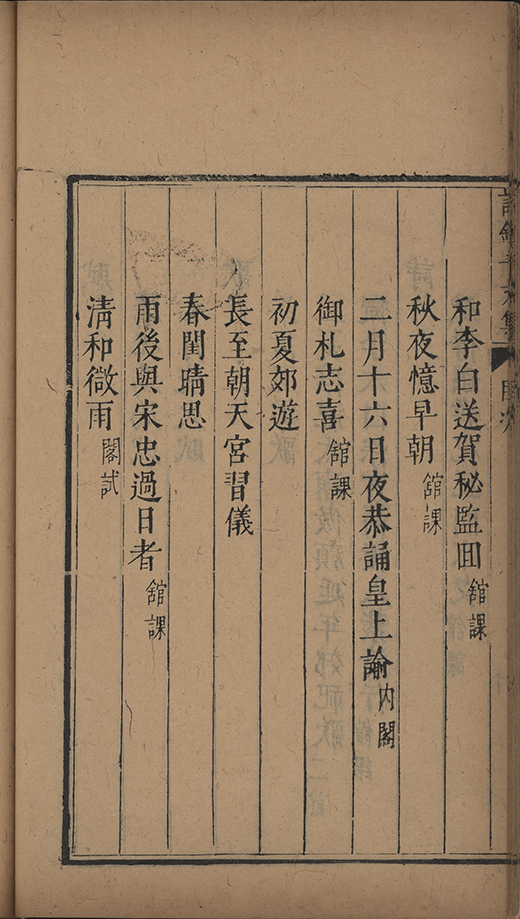 和李白送賀秘監囬 舘課
秋夜憶早朝 舘課
二月十六日夜恭誦皇上諭內閣
御札志喜 舘課
初夏郊遊
長至朝天宮習儀
春閨晴思
雨後與宋忠過日者 舘課
清和微雨 閣試